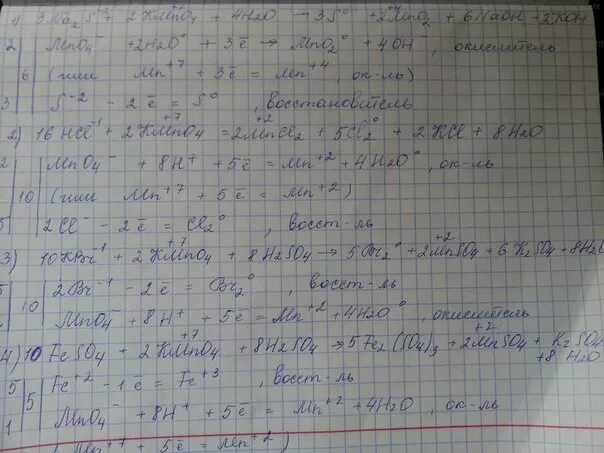 1) 3Na₂S⁻² + 2KMnO₄ + 4H₂O → 3S⁰ + 2MnO₂ + 6NaOH + 2KOH
2 | MnO₄⁻ + 2H₂O⁰ + 3ē → MnO₂⁰ + 4OH, окислитель
6 | (или Mn⁺⁷ + 3ē = Mn⁺⁴, ок-ль)
3 | S⁻² - 2ē = S⁰, восстановитель
2) 16HCl⁻¹ + 2KMnO₄⁺⁷ = 2MnCl₂⁺² + 5Cl₂⁰ + 2KCl + 8H₂O
2 | MnO₄⁻ + 8H⁺ + 5ē = Mn⁺² + 4H₂O⁰, ок-ль
10 | (или Mn⁺⁷ + 5ē = Mn⁺²)
5 | 2Cl⁻ - 2ē = Cl₂⁰, восст-ль
3) 10KBr⁻¹ + 2KMnO₄⁺⁷ + 8H₂SO₄ → 5Br₂⁰ + 2MnSO₄⁺² + 6K₂SO₄ + 8H₂O
5 | 10 | 2Br⁻¹ - 2ē = Br₂⁰, восст-ль
MnO₄⁻ + 8H⁺ + 5ē = Mn⁺² + 4H₂O⁰, окислитель
4) 10FeSO₄ + 2KMnO₄⁺⁷ + 8H₂SO₄ → 5Fe₂(SO₄)₃ + 2MnSO₄⁺² + K₂SO₄ + 8H₂O
5 | 5 | Fe⁺² - 1ē = Fe⁺³, восст-ль
1 | MnO₄⁻ + 8H⁺ + 5ē = Mn⁺² + 4H₂O, ок-ль
(Mn⁺⁷ + 5ē = Mn⁺²)